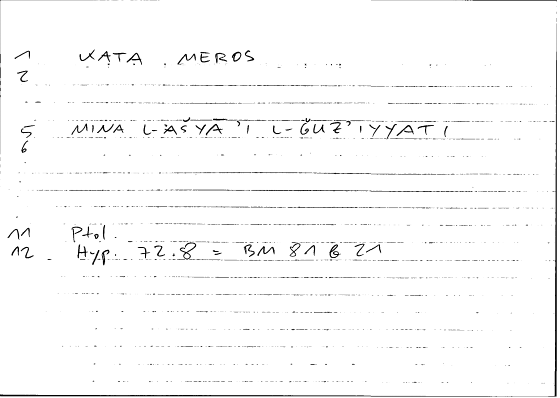 1 KATA MEROS
2
5 MINA L-AŠYĀ'I L-ĞUZ'IYYATI
6
11 Ptol.
12 Hyp. 72.8 = BM 81 B 21